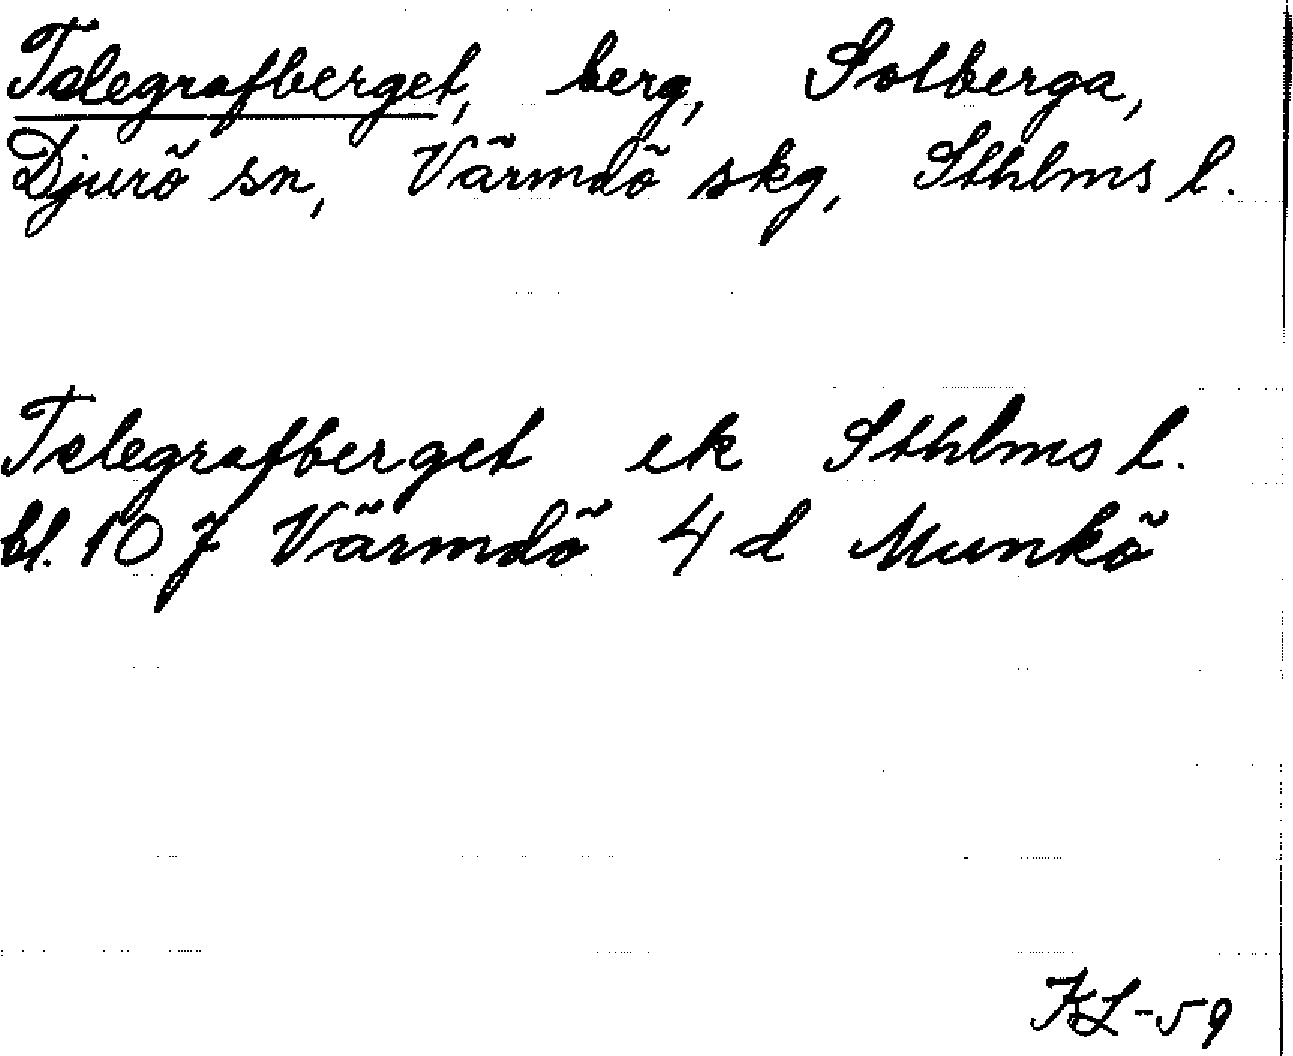 Telegrafberget, berg, Solberga,
Djurö sn, Värmdö skg, Sthlms l.
Telegrafberget ek Sthlms l.
bl. 10 J Värmdö 4 d Munkö
KL-59